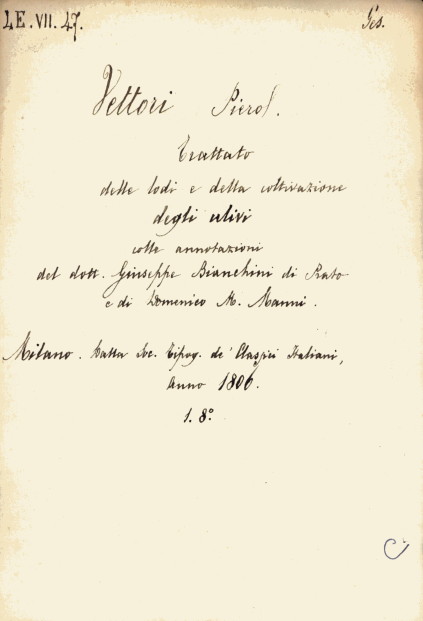 LE.VII.47.
Ges.
Vettori Piero.
Trattato
delle lodi e della coltivazione
degli ulivi
colle annotazioni
del dott. Giuseppe Bianchini di Prato
e di Domenico M. Manni.
Milano. Dalla Soc. Tipog. de' Classici Italiani,
Anno 1806.
1. 8º